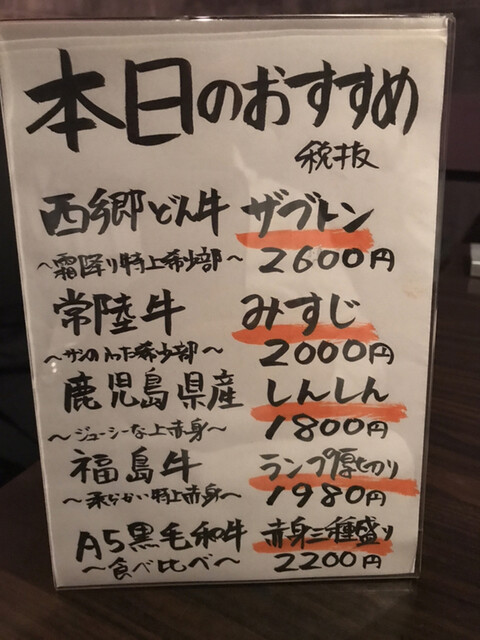 本日のおすすめ
税抜
西郷どん牛 ザブトン
～霜降り特上希少部～ 2600円
常陸牛 みすじ
～サシの入った希少部～ 2000円
鹿児島県産 しんしん
～ジューシーな上赤身～ 1800円
福島牛 ランプ厚切り
～柔らかい特上赤身～ 1980円
A5黒毛和牛 赤身三種盛り
～食べ比べ～ 2200円